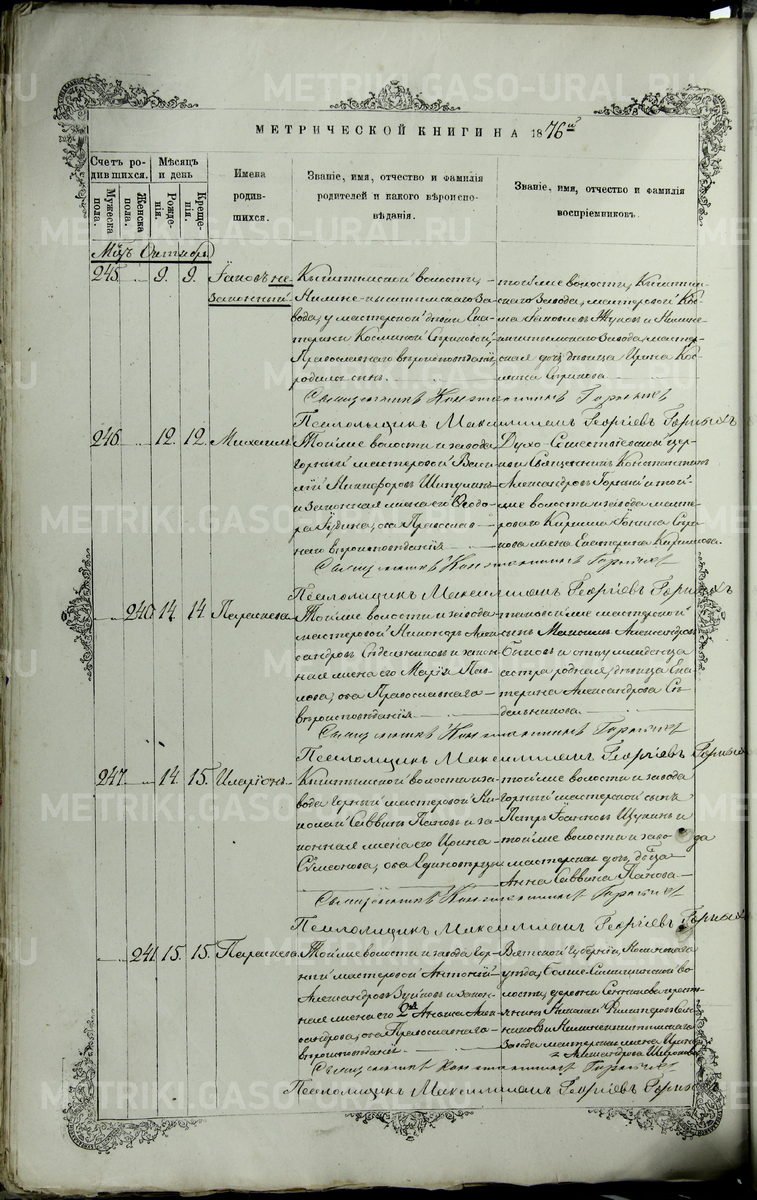 METRIKI.GASO-URAL.RU
МЕТРИЧЕСКОЙ КНИГИ НА 1876й
Счетъ родившихся.
Мужеска пола.
Женска пола.
Мѣсяцъ и день
Рожденія.
Крещенія.
Имена родившихся.
Званіе, имя, отчество и фамилія родителей и какого вѣроисповѣданія.
Званіе, имя, отчество и фамилія воспріемниковъ.
Мцъ Октябрь
245 9. 9.
Іаковъ не-
законный
Кыштымской волости,
Нижне-кыштымскаго За-
вода, у мастерской дочки Ека-
терины Косминой
Православнаго вѣроисповѣданія,
родился сынъ.
той же волости, Кыштым-
скаго Завода, мастеровой Кос-
ма Іаковлевъ Жуковъ и Нижне-
кыштымскаго Завода, мастер-
ская дочь, дѣвица Ирина Кос-
мина
Священникъ Константинъ
Псаломщикъ Максимиліанъ Георгіевъ Горныхъ
246 12. 12. Михаилъ
Той же волости и завода
горный мастеровой Васи-
лій Никифоровъ
и законная жена его Ѳеодо-
ра оба Православ-
наго вѣроисповѣданія
Духо-Сошествіевской цер-
кви Священникъ Константинъ
Александровъ и той-
же волости и завода масте-
роваго Кирилла
жена Екатерина Кириллова.
Священникъ Константинъ
Псаломщикъ Максимиліанъ Георгіевъ Горныхъ
240 14. 14. Параскева
Той же волости и завода
мастеровой Никоноръ Алек-
сандровъ Сѣдельниковъ и закон-
ная жена его Марія Пав-
лова, оба Православнаго
вѣроисповѣданія
таковой же мастерской
сынъ Максимъ Александровъ
Быковъ и отцу младенца
сестра родная, дѣвица Ека-
терина Александрова Сѣ-
дельникова.
Священникъ Константинъ
Псаломщикъ Максимиліанъ Георгіевъ Горныхъ
247 14. 15. Иларіонъ
Кыштымской волости и за-
вода горный мастеровой Ни-
колай Саввинъ Пановъ и за-
конная жена его Ирина
Сѷмеонова, оба Единовѣрцы
той же волости и завода
горный мастерской сынъ
Петръ Іоанновъ Щукинъ и
той же волости и завода
мастерская дочь, дѣвица
Анна Саввина Панова
Священникъ Константинъ
Псаломщикъ Максимиліанъ Георгіевъ Горныхъ
241 15. 15. Параскева
Той же волости и завода гор-
ный мастеровой Антоній
Александровъ Зуйковъ и закон-
ная жена его Алек-
сандрова, оба Православнаго
вѣроисповѣданія
Вятской Губерніи,
уѣзда,
волости, деревни крестья-
нинъ Николай
и Нижнекыштымскаго
Завода мастерская жена Ирина
Александрова
Священникъ Константинъ
Псаломщикъ Максимиліанъ Георгіевъ Горныхъ